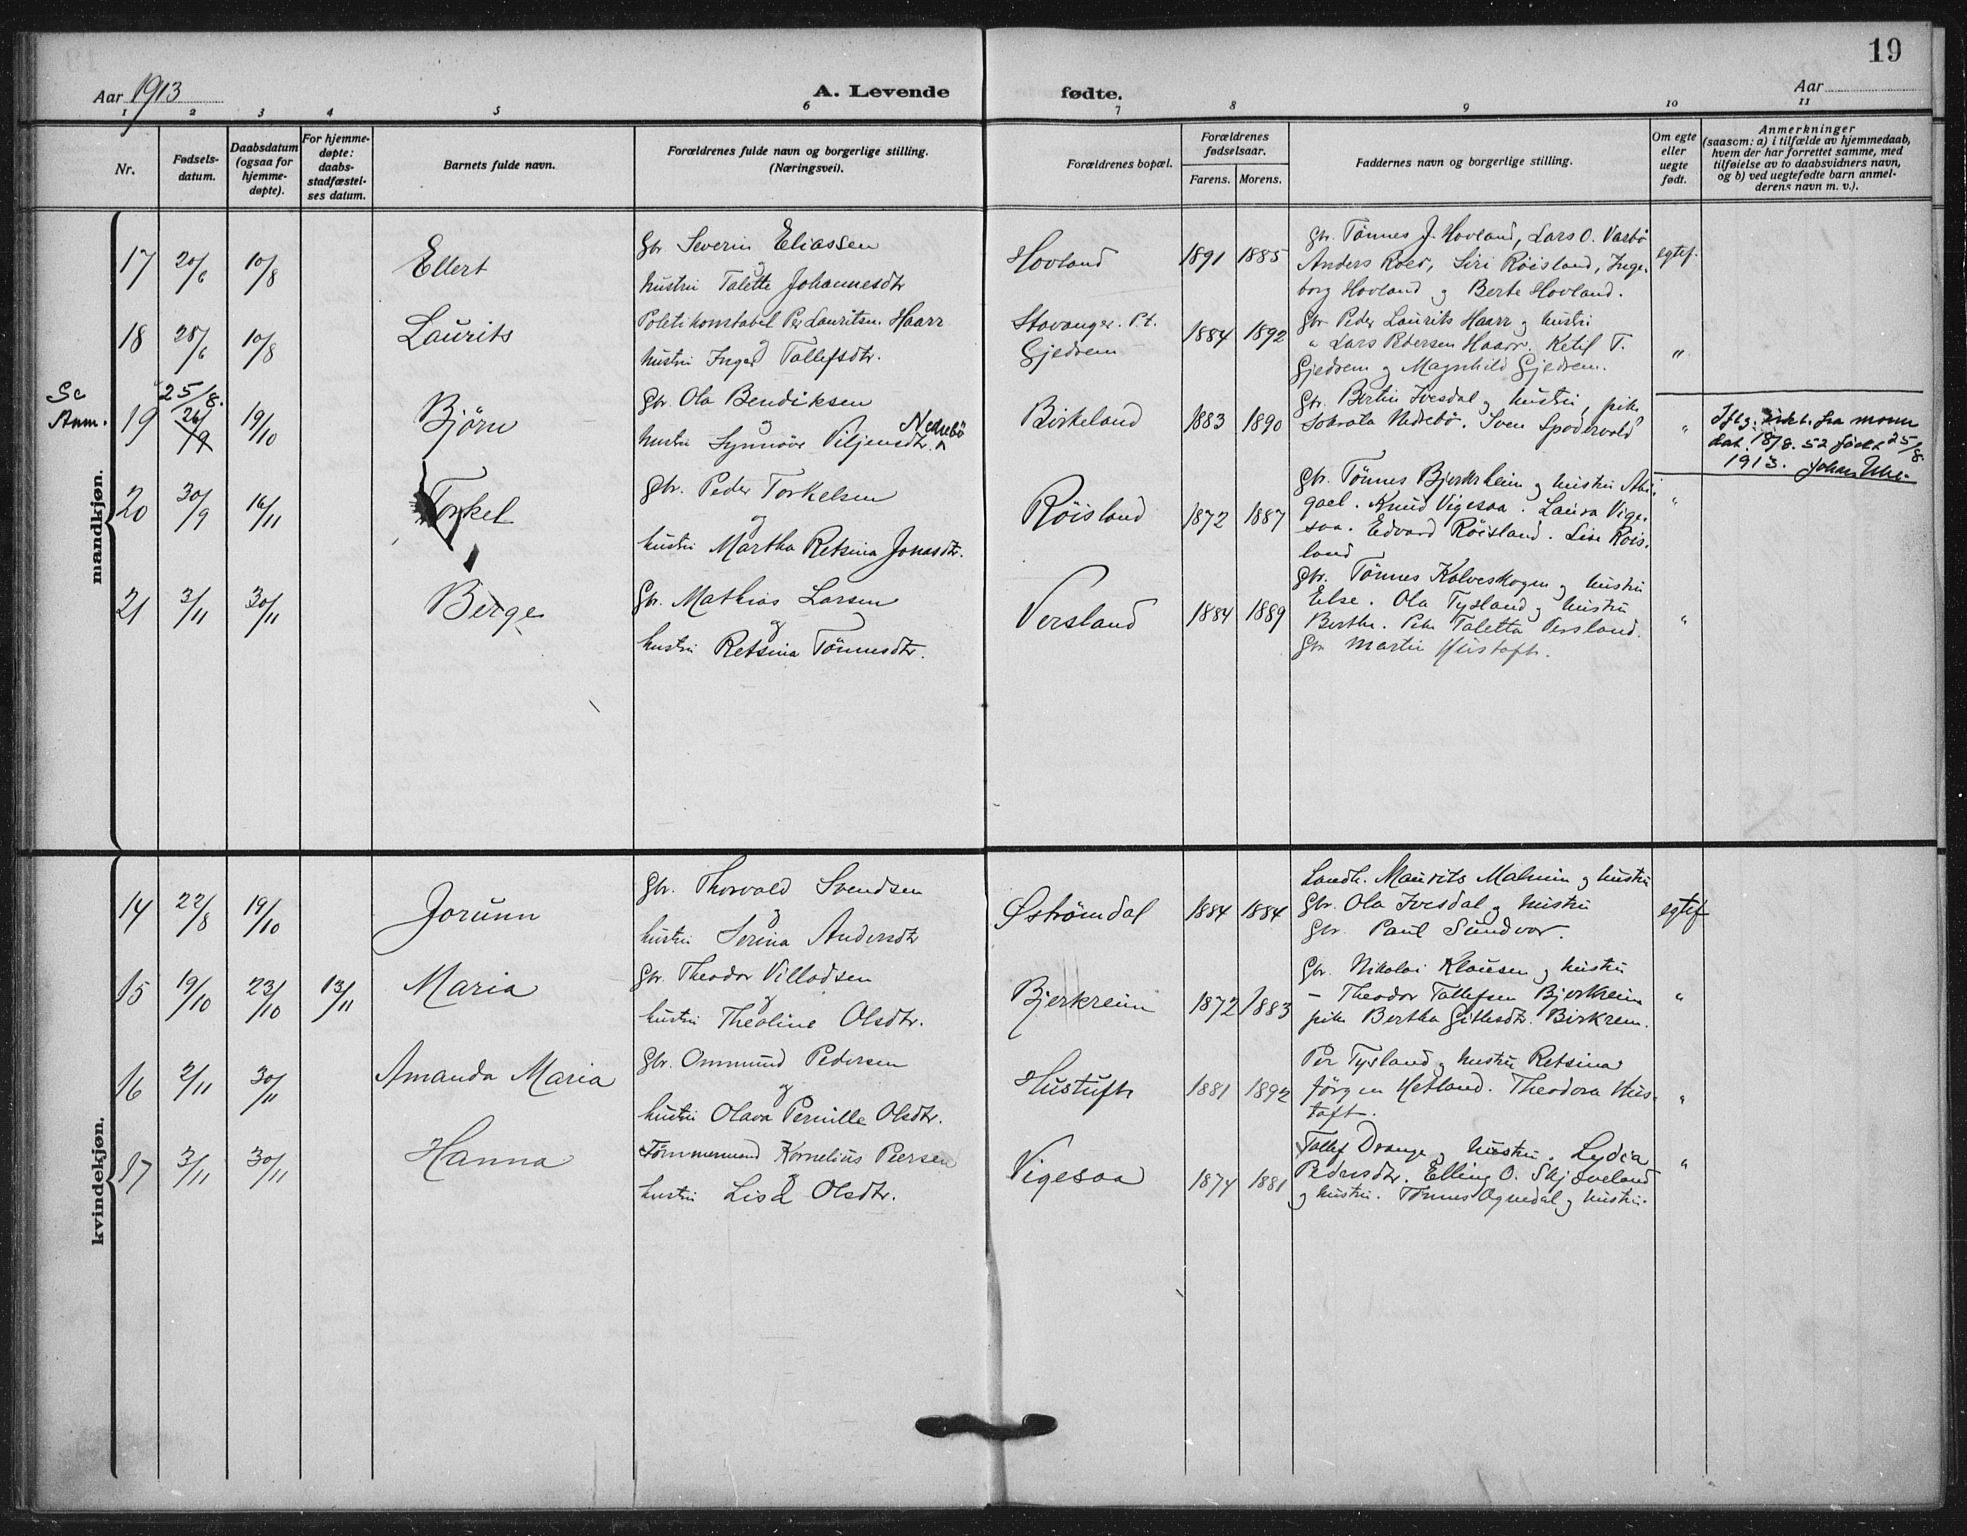 19
Aar 1913
A. Levende fødte.
Aar
1 2 3 4 5 6 7 8 9 10 11
Nr.
Fødsels-
datum.
Daabsdatum
(ogsaa for
hjemme-
døpte).
For hjemme-
døpte:
daabs-
stadfæstel-
ses datum.
Barnets fulde navn.
Forældrenes fulde navn og borgerlige stilling.
(Næringsvei).
Forældrenes bopæl.
Forældrenes
fødselsaar.
Farens. Morens.
Faddernes navn og borgerlige stilling.
Om egte
eller
uegte
født.
Anmerkninger
(saasom: a) i tilfælde av hjemmedaab,
hvem der har forrettet samme, med
tilføielse av to daabsvidners navn,
og b) ved uegtefødte barn anmel-
derens navn m. v.).
mandkjøn.
17 20/6 10/8 Ellert
Gbr. Severin Eliassen
og
hustru Talette Johannesdtr
Hovland 1891 1885
Gbr. Tønnes J. Hovland, Lars O. Varbø
Anders Roed, Siri Röisland, Inge-
borg Hovland og Berte Hovland.
egtef.
18 28/6 10/8 Laurits
Politikonstabel Per Lauritsen Haarr
og
hustru Inger Tallefsdtr.
Stavanger. P.t.
Gjedrem 1884 1892
Gbr Peder Laurits Haarr og hustru
" Lars Pedersen Haarr. Ketil T.
Gjedrem og Magnhild Gjedrem.
"
Se
Anm.
19 25/8. 26/9 19/10 Bjørn
Gbr. Ola Bendiksen
og
hustru Synnöve Viljemsdtr. Nedrebö
Birkeland 1883 1890
Gbr. Bertin Ivesdal og hustru, pike
Nedrebö. Sven Spödervold
"
Iflg. fra moren
dat. 18/8. 52 født 25/8
1913.
20 30/9 16/11 Torkel
Gbr. Peder Torkelsen
og
hustru Martha Retsina Jonasdtr.
Röisland 1872 1887
Gbr. Tönnes Bjerkreim og hustru Abi-
gael. Knud Vigesaa. Laura Vige-
saa. Edvard Röisland. Lise Röis-
land
"
21 3/11 30/11 Berge
Gbr. Mathias Larsen
og
hustru Retsina Tönnesdtr.
Versland 1884 1889
Gbr. Tönnes Kalveskogen og hustru
Else. Ola Tysland og hustru
Berthe. Pike Taletta Versland.
Gbr Martin Hustoft.
"
kvindekjøn.
14 22/8 19/10 Jorunn
Gbr. Thorvald Svendsen
og
hustru Serina Andersdtr
Øströmdal 1884 1884
Landh. Maurits Malmin og hustru
Gbr. Ola Ivesdal og hustru
Gbr. Paul Sundvor.
egtef
15 19/10 23/10 13/11 Maria
Gbr. Theodor Villadsen
og
hustru Theoline Olsdtr.
Bjerkreim 1872 1883
Gbr. Nikolai Klausen og hustru
- Theodor Tallefsen Bjerkreim
pike Bertha Gitlesdtr. Birkrem.
"
16 2/11 30/11 Amanda Maria
Gbr. Ommund Pedersen
og
hustru Olava Pernille Olsdtr.
Hustuft 1881 1892
Per Tysland og hustru Retsina
Jörgen Hetland. Theodora Hus-
toft.
"
17 3/11 30/11 Hanna
Tömmermand Kornelius Peersen
og
hustru Lise Olsdtr.
Vigesaa 1874 1881
Tallef Drange og hustru. Lydia
Pedersdtr. Elling O. Skjæveland
og hustru. Tönnes Ognedal og hustru.
"